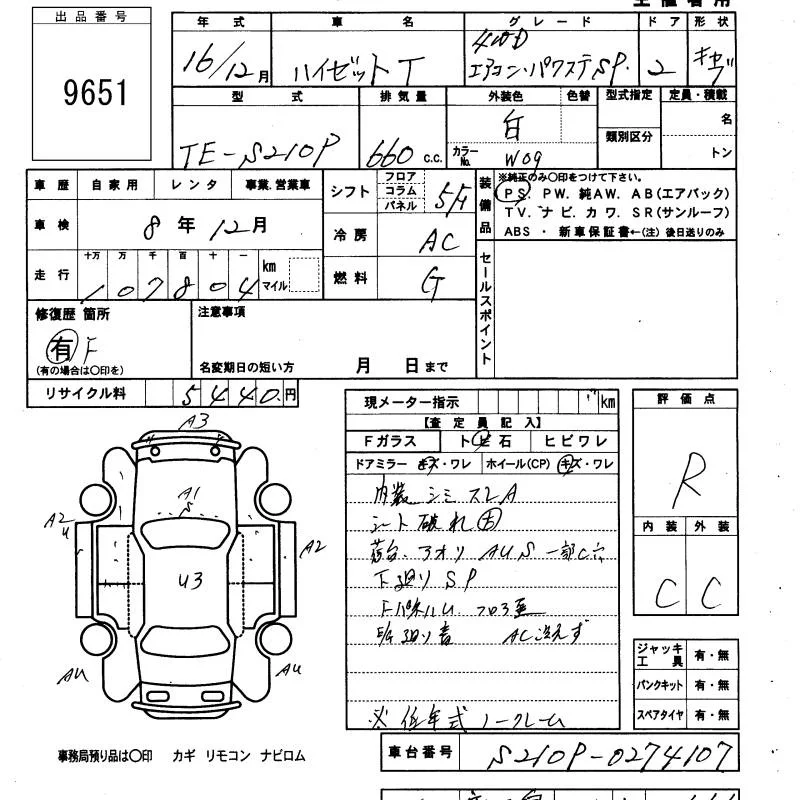 出品番号
9651
年式 車名 グレード ドア 形状
16/12月 ハイゼットT 4WD エアコン・パワステSP. 2 キャブ
型式 排気量 外装色 色替 型式指定 定員・積載
TE-S210P 660 c.c. 白 カラーNo. W09 類別区分 名 トン
車歴 自家用 レンタ 事業.営業車
車検 8年12月
走行 十万 万 千 百 十 一
107804 km マイル
シフト フロア コラム パネル 5/F
冷房 AC
燃料 G
装備品 ※純正のみ〇印をつけて下さい。
PS. PW. 純AW. AB(エアバック)
TV. ナビ. カワ. SR(サンルーフ)
ABS ・ 新車保証書←(注) 後日送りのみ
セールスポイント
修復歴 箇所
有 F
(有の場合は〇印を)
注意事項
名変期日の短い方 月 日まで
リサイクル料 5440円
現メーター指示 km
【査定員記入】
Fガラス トビ石 ヒビワレ
ドアミラー キズ・ワレ ホイール(CP) キズ・ワレ
内装 シミ スレA
シート 破れ 大
荷台. アオリ AUS 一部C穴
下廻りSP
AC冷えず
※低年式 ノークレーム
評価点
R
内装 外装
C C
A3
A1
S
A2
U
U3
A2
AU
AU
ジャッキ工具 有・無
パンクキット 有・無
スペアタイヤ 有・無
事務局預り品は〇印 カギ リモコン ナビロム
車台番号 S210P-0274107